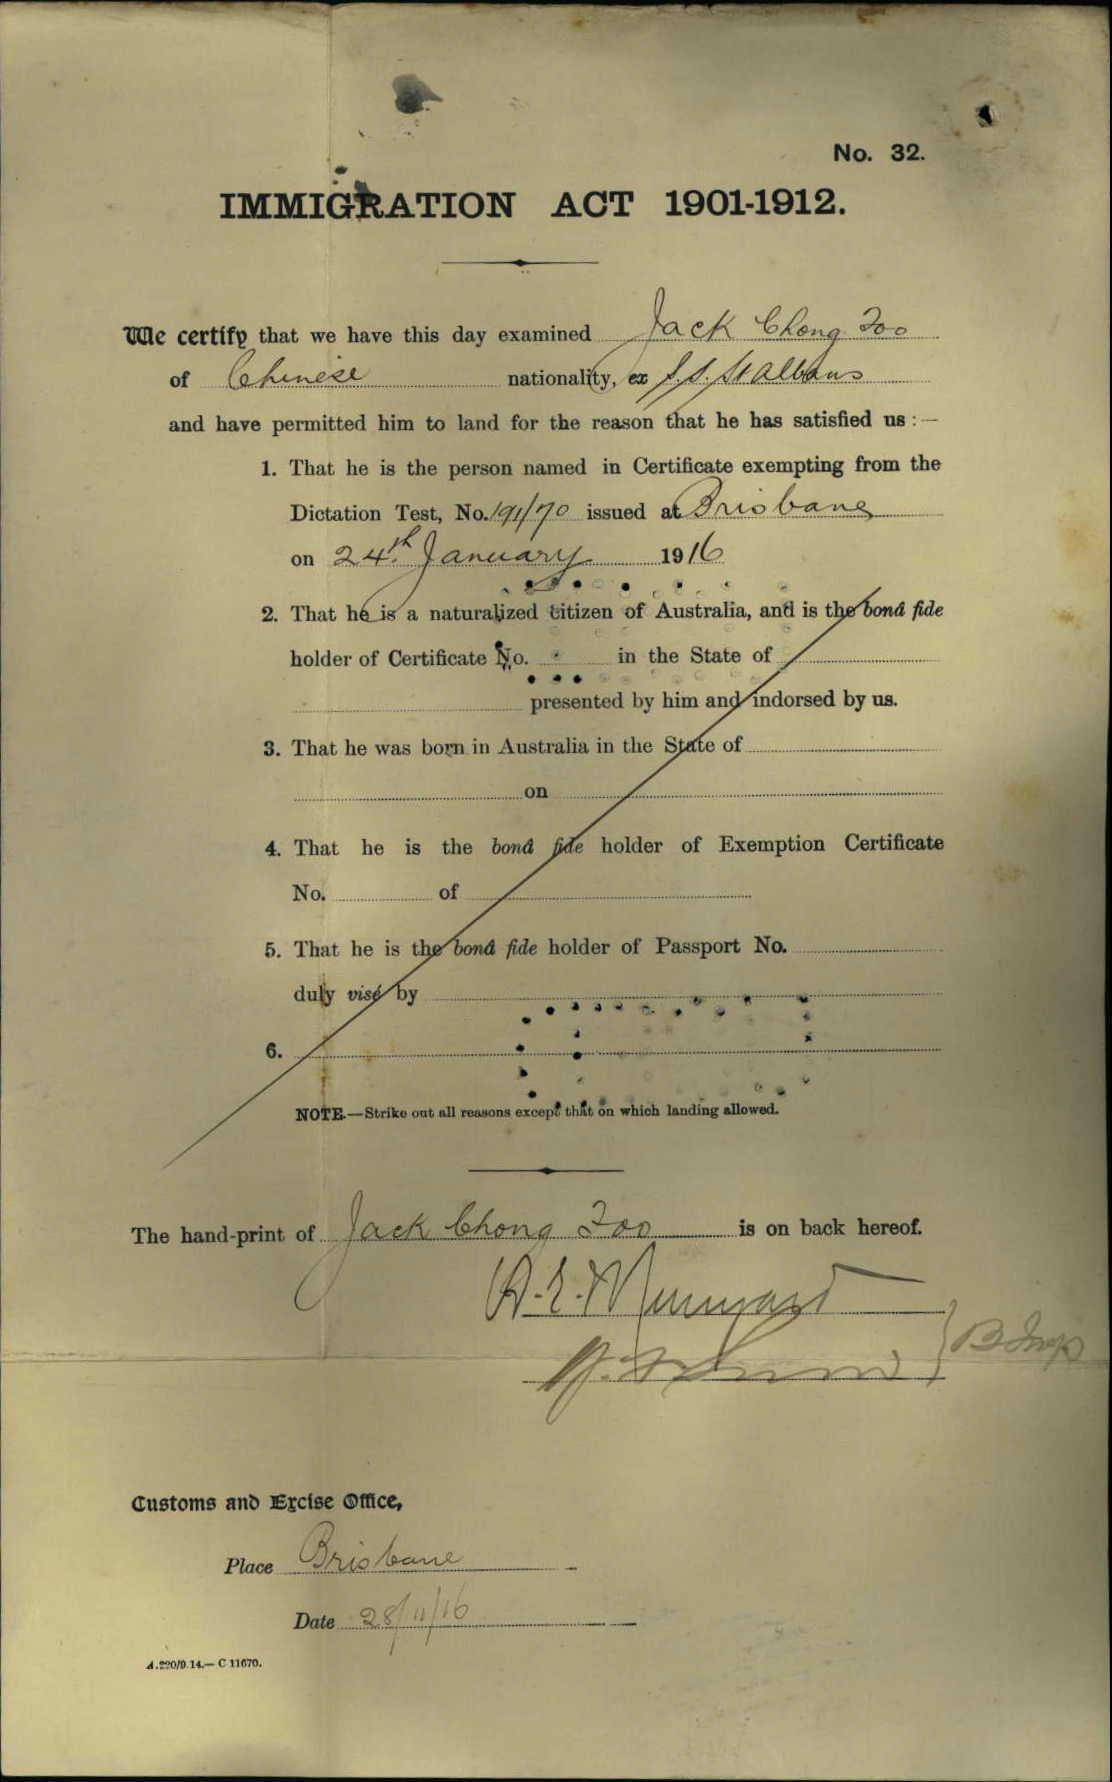 No. 32.
IMMIGRATION ACT 1901-1912.
We certify that we have this day examined Jack Chong Foo
of Chinese nationality, ex S.S. St Albans
and have permitted him to land for the reason that he has satisfied us :—
1. That he is the person named in Certificate exempting from the
Dictation Test, No. 191/70 issued at Brisbane
on 24th January 1916
2. That he is a naturalized citizen of Australia, and is the bonâ fide
holder of Certificate No. in the State of
presented by him and indorsed by us.
3. That he was born in Australia in the State of
on
4. That he is the bonâ fide holder of Exemption Certificate
No. of
5. That he is the bonâ fide holder of Passport No.
duly visé by
6.
NOTE.—Strike out all reasons except that on which landing allowed.
The hand-print of Jack Chong Foo is on back hereof.
Customs and Excise Office,
Place Brisbane
Date 28/11/16
A.220/9.14.— C 11670.